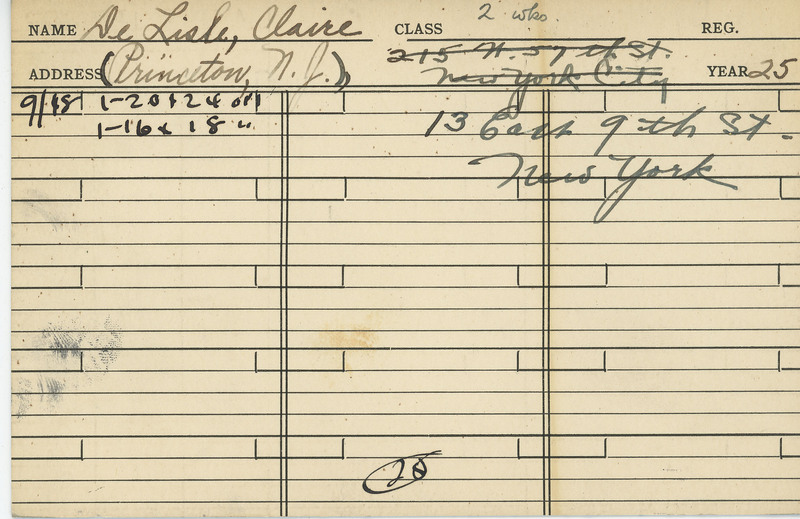 NAME De Lisle, Claire CLASS 2 wks. REG.
215 W. 57th St.
ADDRESS (Princeton, N.J.) New York City YEAR 25
9/18 1-20 x 24 oil
1-16 x 18 "
13 East 9th St.
New York
25